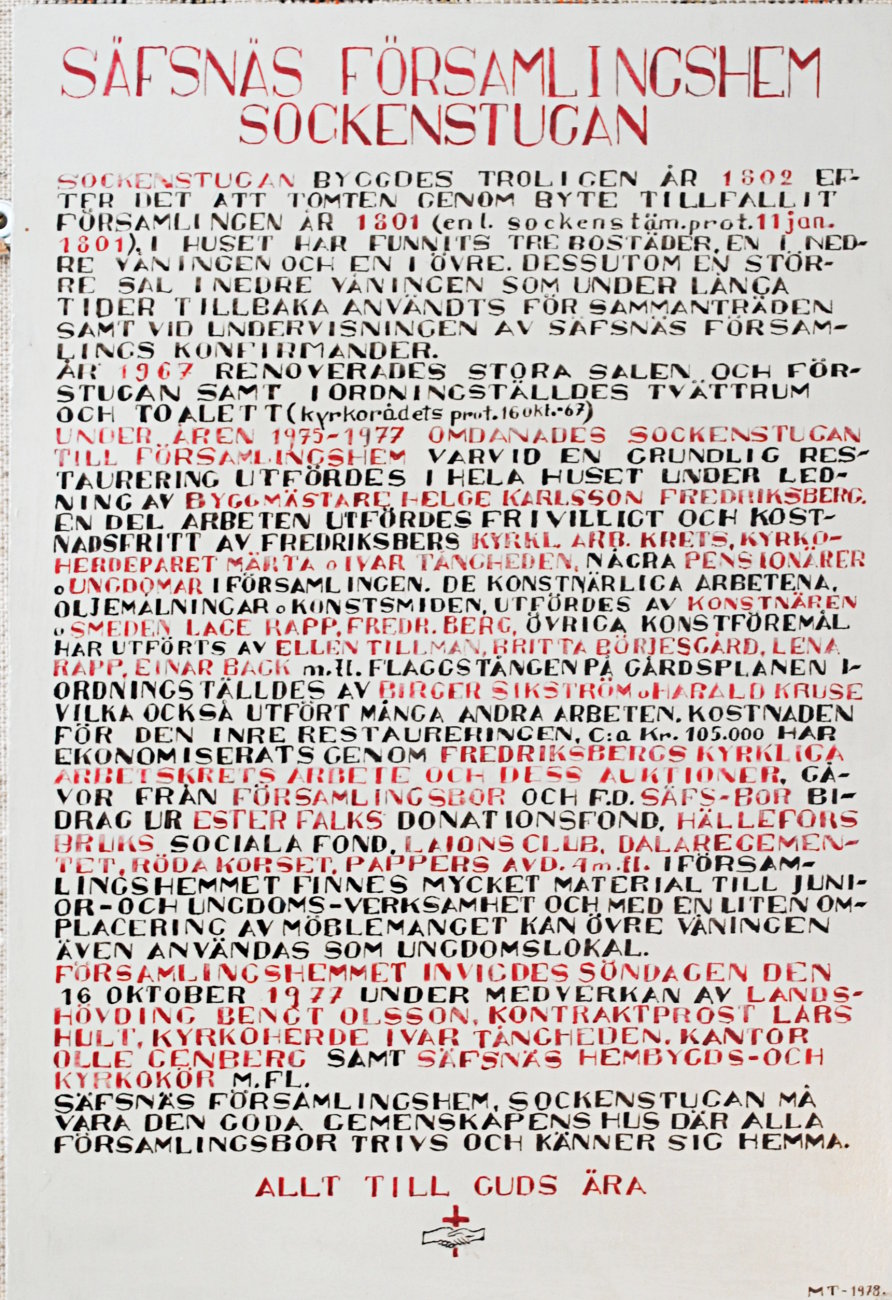 SÄFSNÄS FÖRSAMLINGSHEM
SOCKENSTUGAN
SOCKENSTUGAN BYGGDES TROLIGEN ÅR 1802 EF-
TER DET ATT TOMTEN GENOM BYTE TILLFALLIT
FÖRSAMLINGEN ÅR 1801 (enl. sockenstäm.prot.11 jan.
1801). I HUSET HAR FUNNITS TRE BOSTÄDER, EN I NED-
RE VÅNINGEN OCH EN I ÖVRE. DESSUTOM EN STÖR-
RE SAL I NEDRE VÅNINGEN SOM UNDER LÅNGA
TIDER TILLBAKA ANVÄNDTS FÖR SAMMANTRÄDEN
SAMT VID UNDERVISNINGEN AV SÄFSNÄS FÖRSAM-
LINGS KONFIRMANDER.
ÅR 1967 RENOVERADES STORA SALEN OCH FÖR-
STUGAN SAMT IORDNINGSTÄLLDES TVÄTTRUM
OCH TOALETT (kyrkorådets prot. 16 okt.-67)
UNDER ÅREN 1975-1977 OMDANADES SOCKENSTUGAN
TILL FÖRSAMLINGSHEM VARVID EN GRUNDLIG RES-
TAURERING UTFÖRDES I HELA HUSET UNDER LED-
NING AV BYGGMÄSTARE HELGE KARLSSON FREDRIKSBERG.
EN DEL ARBETEN UTFÖRDES FRIVILLIGT OCH KOST-
NADSFRITT AV FREDRIKSBERS KYRKL. ARB. KRETS, KYRKO-
HERDEPARET MÄRTA o IVAR TÅNGHEDEN, NÅGRA PENSIONÄRER
o UNGDOMAR I FÖRSAMLINGEN. DE KONSTNÄRLIGA ARBETENA,
OLJEMÅLNINGAR o KONSTSMIDEN, UTFÖRDES AV KONSTNÄREN
o SMEDEN LAGE RAPP, FREDR. BERG, ÖVRIGA KONSTFÖREMÅL
HAR UTFÖRTS AV ELLEN TILLMAN, BRITTA BÖRJESGÅRD, LENA
RAPP, EINAR BACK m.fl. FLAGGSTÅNGEN PÅ GÅRDSPLANEN I-
ORDNINGSTÄLLDES AV BIRGER SIKSTRÖM o HARALD KRUSE
VILKA OCKSÅ UTFÖRT MÅNGA ANDRA ARBETEN. KOSTNADEN
FÖR DEN INRE RESTAURERINGEN, C:a Kr. 105.000 HAR
EKONOMISERATS GENOM FREDRIKSBERGS KYRKLIGA
ARBETSKRETS ARBETE OCH DESS AUKTIONER, GÅ-
VOR FRÅN FÖRSAMLINGSBOR OCH F.D. SÄFS-BOR BI-
DRAG UR ESTER FALKS DONATIONSFOND, HÄLLEFORS
BRUKS SOCIALA FOND, LAIONS CLUB, DALAREGEMEN-
TET, RÖDA KORSET, PAPPERS AVD. 4 m.fl. I FÖRSAM-
LINGSHEMMET FINNES MYCKET MATERIAL TILL JUNI-
OR- OCH UNGDOMS-VERKSAMHET OCH MED EN LITEN OM-
PLACERING AV MÖBLEMANGET KAN ÖVRE VÅNINGEN
ÄVEN ANVÄNDAS SOM UNGDOMSLOKAL.
FÖRSAMLINGSHEMMET INVIGDES SÖNDAGEN DEN
16 OKTOBER 1977 UNDER MEDVERKAN AV LANDS-
HÖVDING BENGT OLSSON, KONTRAKTPROST LARS
HULT, KYRKOHERDE IVAR TÅNGHEDEN. KANTOR
OLLE GENBERG SAMT SÄFSNÄS HEMBYGDS-OCH
KYRKOKÖR M.FL.
SÄFSNÄS FÖRSAMLINGSHEM, SOCKENSTUGAN MÅ
VARA DEN GODA GEMENSKAPENS HUS DÄR ALLA
FÖRSAMLINGSBOR TRIVS OCH KÄNNER SIG HEMMA.
ALLT TILL GUDS ÄRA
MT-1978.